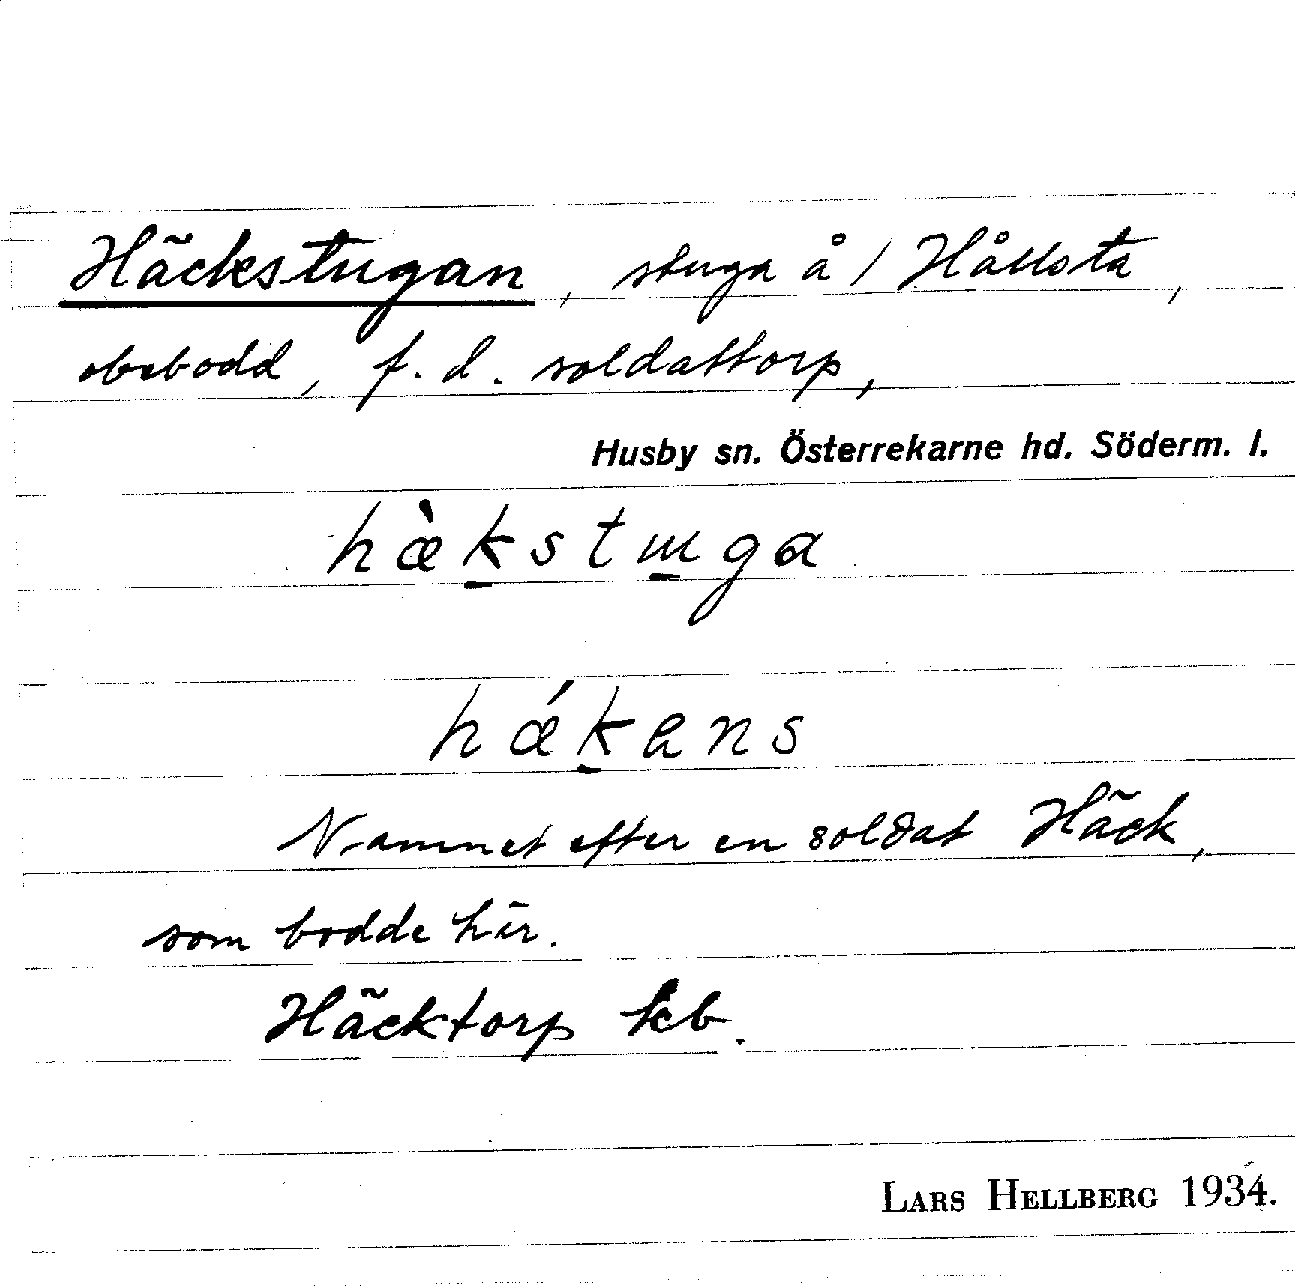 Häckstugan, stuga å / Hållsta,
obebodd, f. d. soldattorp,
Husby sn. Österrekarne hd. Söderm. l.
hæ̀kstuga
hǽkans
Namnet efter en soldat Häck,
som bodde här.
Häcktorp kb.
LARS HELLBERG 1934.